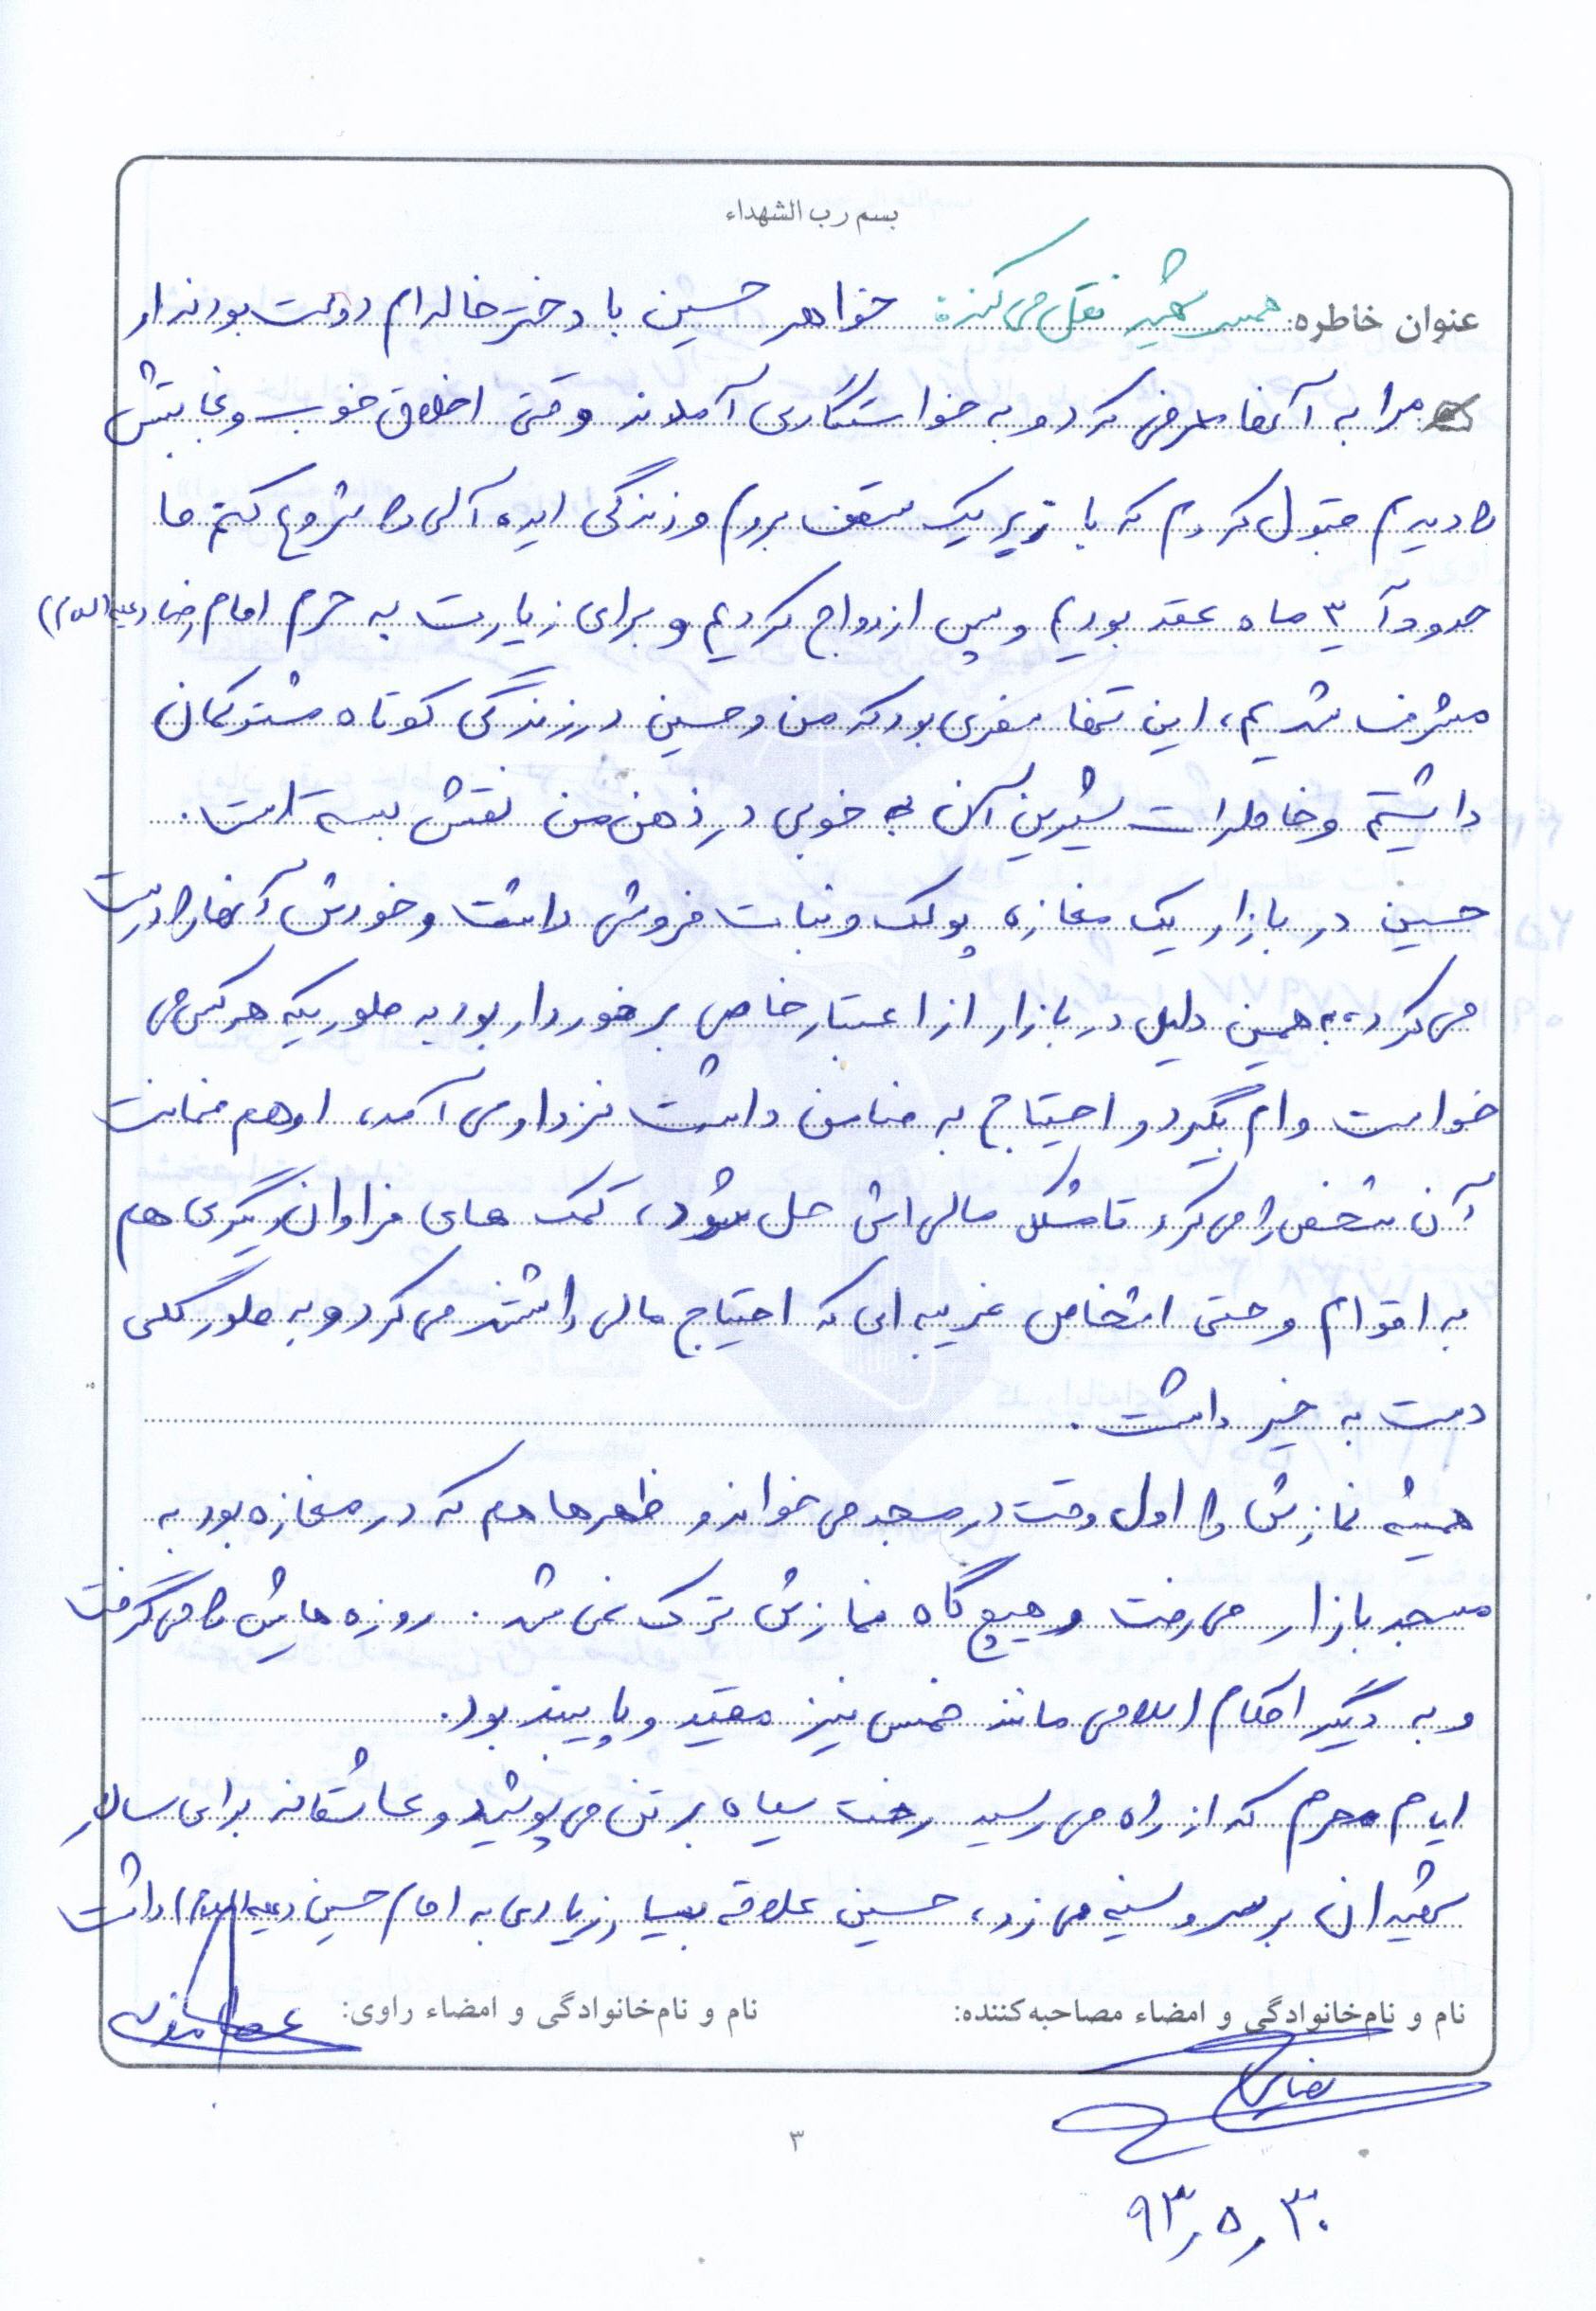 بسم رب الشهداء
عنوان خاطره: همسر شهید نقل می کند: خواهر حسین با دختر خاله ام دوست بودند او
مرا به آنها معرفی کرد و به خواستگاری آمدند وقتی اخلاق خوب و نجابتش
را دیدیم قبول کردم که با زیر یک سقف بروم و زندگی ایده آلی را شروع کنم ما
حدوداً ۳ ماه عقد بودیم و سپس ازدواج کردیم و برای زیارت به حرم امام رضا (علیه السلام)
مشرف شدیم، این تنها سفری بود که من و حسین در زندگی کوتاه مشترکمان
داشتیم و خاطرات شیرین آن به خوبی در ذهن من نقش بسته است.
حسین در بازار یک مغازه پولک و نبات فروشی داشت و خودش آنها را درست
می کرد، به همین دلیل در بازار از اعتبار خاصی برخوردار بود به طوریکه هر کس می
خواست وام بگیرد و احتیاج به ضامن داشت نزد او می آمد، او هم ضمانت
آن شخص را می کرد تا مشکل مالی اش حل شود، کمک های فراوان دیگری هم
به اقوام و حتی اشخاص غریبه ای که احتیاج مالی داشتند می کرد و به طور کلی
دست به خیر داشت.
همیشه نمازش را اول وقت در مسجد می خواند و ظهرها هم که در مغازه بود به
مسجد بازار می رفت و هیچ گاه نمازش ترک نمی شد. روزه هایش را می گرفت
و به دیگر احکام اسلامی مانند خمس نیز مقید و پایبند بود.
ایام محرم که از راه می رسید رخت سیاه بر تن می پوشید و عاشقانه برای سالار
شهیدان بر سر و سینه می زد، حسین علاقه بسیار زیادی به امام حسین (علیه السلام) داشت
نام و نام‌خانوادگی و امضاء مصاحبه‌کننده: نام و نام‌خانوادگی و امضاء راوی:
۳
۹۳٫۵٫۳۰